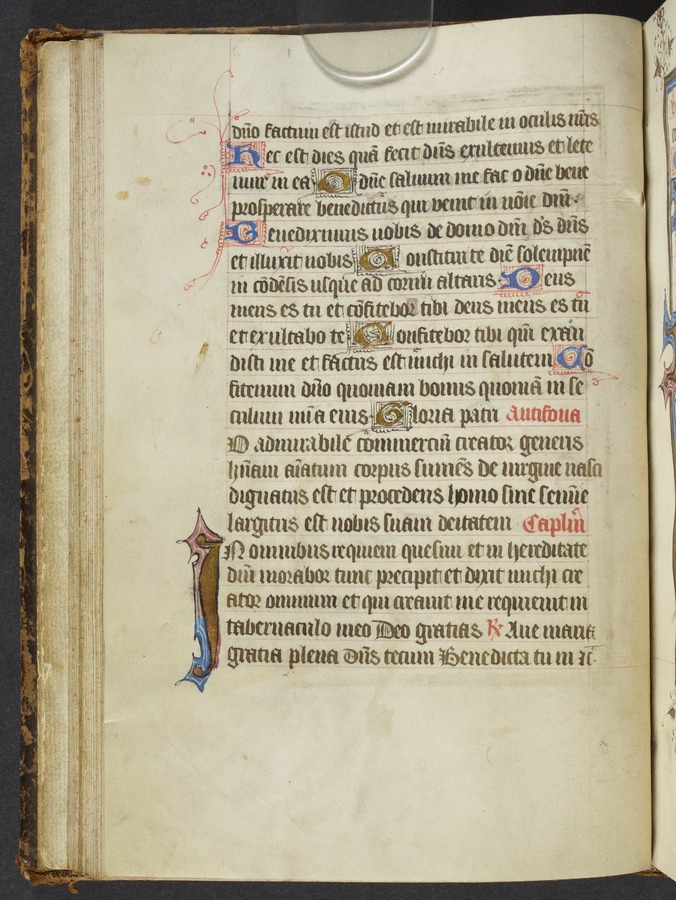 dño factum est istud et est mirabile in oculis nr̃is
Hec est dies quã fecit dñs exultemus et lete
mur in ea O dñe saluum me fac o dñe bene
prosperare benedictus qui venit in nõie dñi
Benediximus uobis de domo dñi dˢs dñs
et illuxit nobis Constituite diẽ solempnẽ
in cõdẽsis usque ad cornu altaris Deus
meus es tu et cõfitebor tibi deus meus es tu
et exultabo te Confitebor tibi qm̃ exau
disti me et factus est michi in salutem Cõ
fitemini dño quoniam bonus quoniã in se
culum mĩa eius Gloria patri Antifona
O admirabile commerciũ creator generis
hũani aĩatum corpus sumẽs de uirgine nasci
dignatus est et procedens homo sine semĩe
largitus est nobis suam deitatem Caplm̃
IN omnibus requiem quesiui et in hereditate
dñi morabor tunc precipit et dixit michi cre
ator omnium et qui creauit me requieuit in
tabernaculo meo Deo gratias ℟ Aue maria
gratia plena Dñs tecum Benedicta tu in ⁊c̃